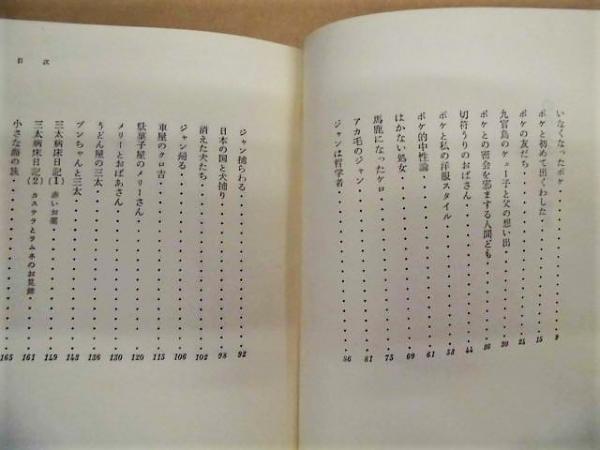 いなくなったポケ・・・・・・・・9
ポケと初めて出くわした・・・・・・・・15
ポケの友だち・・・・・・・・24
九官鳥のキュー子と父の想い出・・・・・・・・30
ポケとの密会を邪まする人間ども・・・・・・・・36
切符うりのおばさん・・・・・・・・44
ポケと私の洋服スタイル・・・・・・・・58
ポケ的中性論・・・・・・・・61
はかない処女・・・・・・・・69
馬鹿になったケロ・・・・・・・・75
アカ毛のジャン・・・・・・・・81
ジャンは哲学者・・・・・・・・86
ジャン捕らわる・・・・・・・・92
日本の国と犬捕り・・・・・・・・98
消えた犬たち・・・・・・・・102
ジャン帰る・・・・・・・・106
車屋のクロ吉・・・・・・・・115
駄菓子屋のメリーさん・・・・・・・・120
メリーとおばあさん・・・・・・・・130
うどん屋の三太・・・・・・・・136
ブンちゃんと三太・・・・・・・・143
三太病床日記(1) 赤いお薬・・・・・・・・149
三太病床日記(2) カステラとラムネのお見舞・・・・・・・・161
小さな鼻の旅・・・・・・・・165
目次